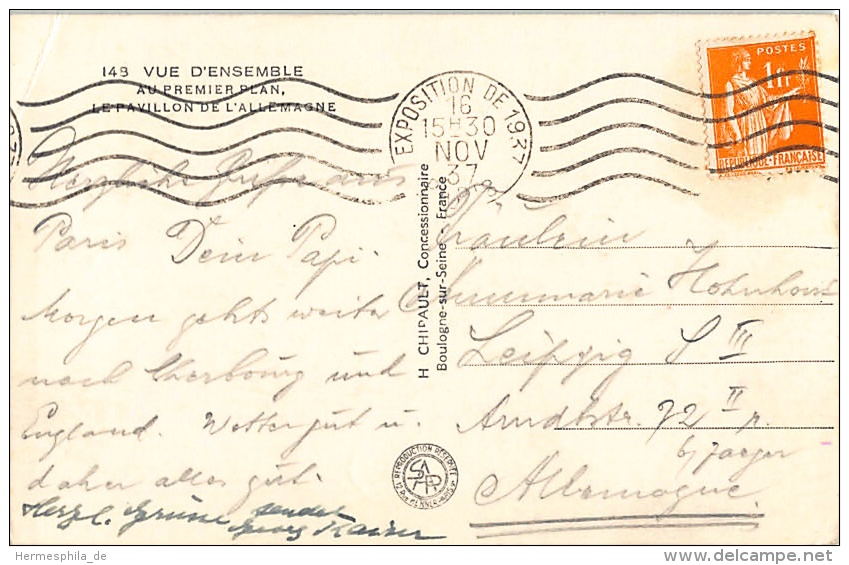 148 VUE D'ENSEMBLE
AU PREMIER PLAN,
LE PAVILLON DE L'ALLEMAGNE
EXPOSITION DE 1937
16
15H30
NOV
37
POSTES
1fr
REPUBLIQUE FRANÇAISE
Herzliche Grüße aus
Paris Dein Papi.
Morgen gehts weiter
nach Cherbourg und
England. Wetter gut u.
daher alles gut.
Herzl. Grüße sendet
Georg Kaiser
H CHIPAULT, Concessionnaire
Boulogne-sur-Seine - France
REPRODUCTION RÉSERVÉE
Fräulein
Annemarie
Leipzig S III
Arndtstr. 72 II r.
b/ Jaeger
Allemagne.
Hermesphila_de
delcampe.net